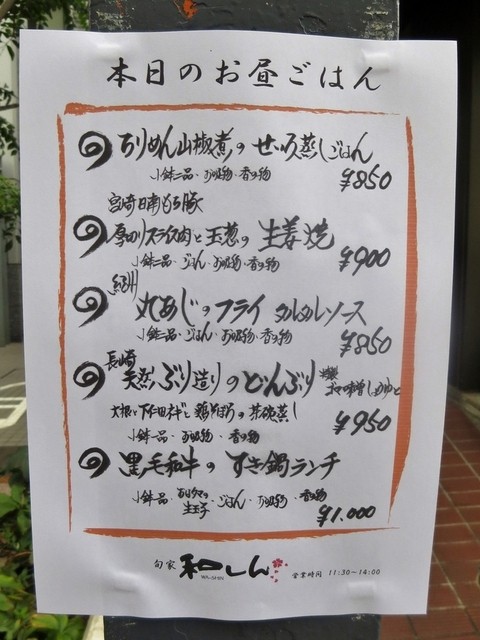 本日のお昼ごはん
ちりめん山椒煮のせいろ蒸しごはん
小鉢二品・お吸物・香の物
¥850
宮崎日南もち豚
厚切りスライス肉と玉葱の生姜焼
小鉢二品・ごはん・お吸物・香の物
¥900
紀州
丸あじのフライ タルタルソース
小鉢二品・ごはん・お吸物・香の物
¥850
長崎
天然ぶり造りのどんぶり
ゴマ味噌しょうゆと
大根と下仁田ネギと鶏そぼろの茶碗蒸し
¥950
小鉢一品・お吸物・香の物
黒毛和牛のすき鍋ランチ
小鉢一品・玉子・ごはん・お吸物・香の物
¥1.000
旬家 和しん
営業時間 11:30～14:00